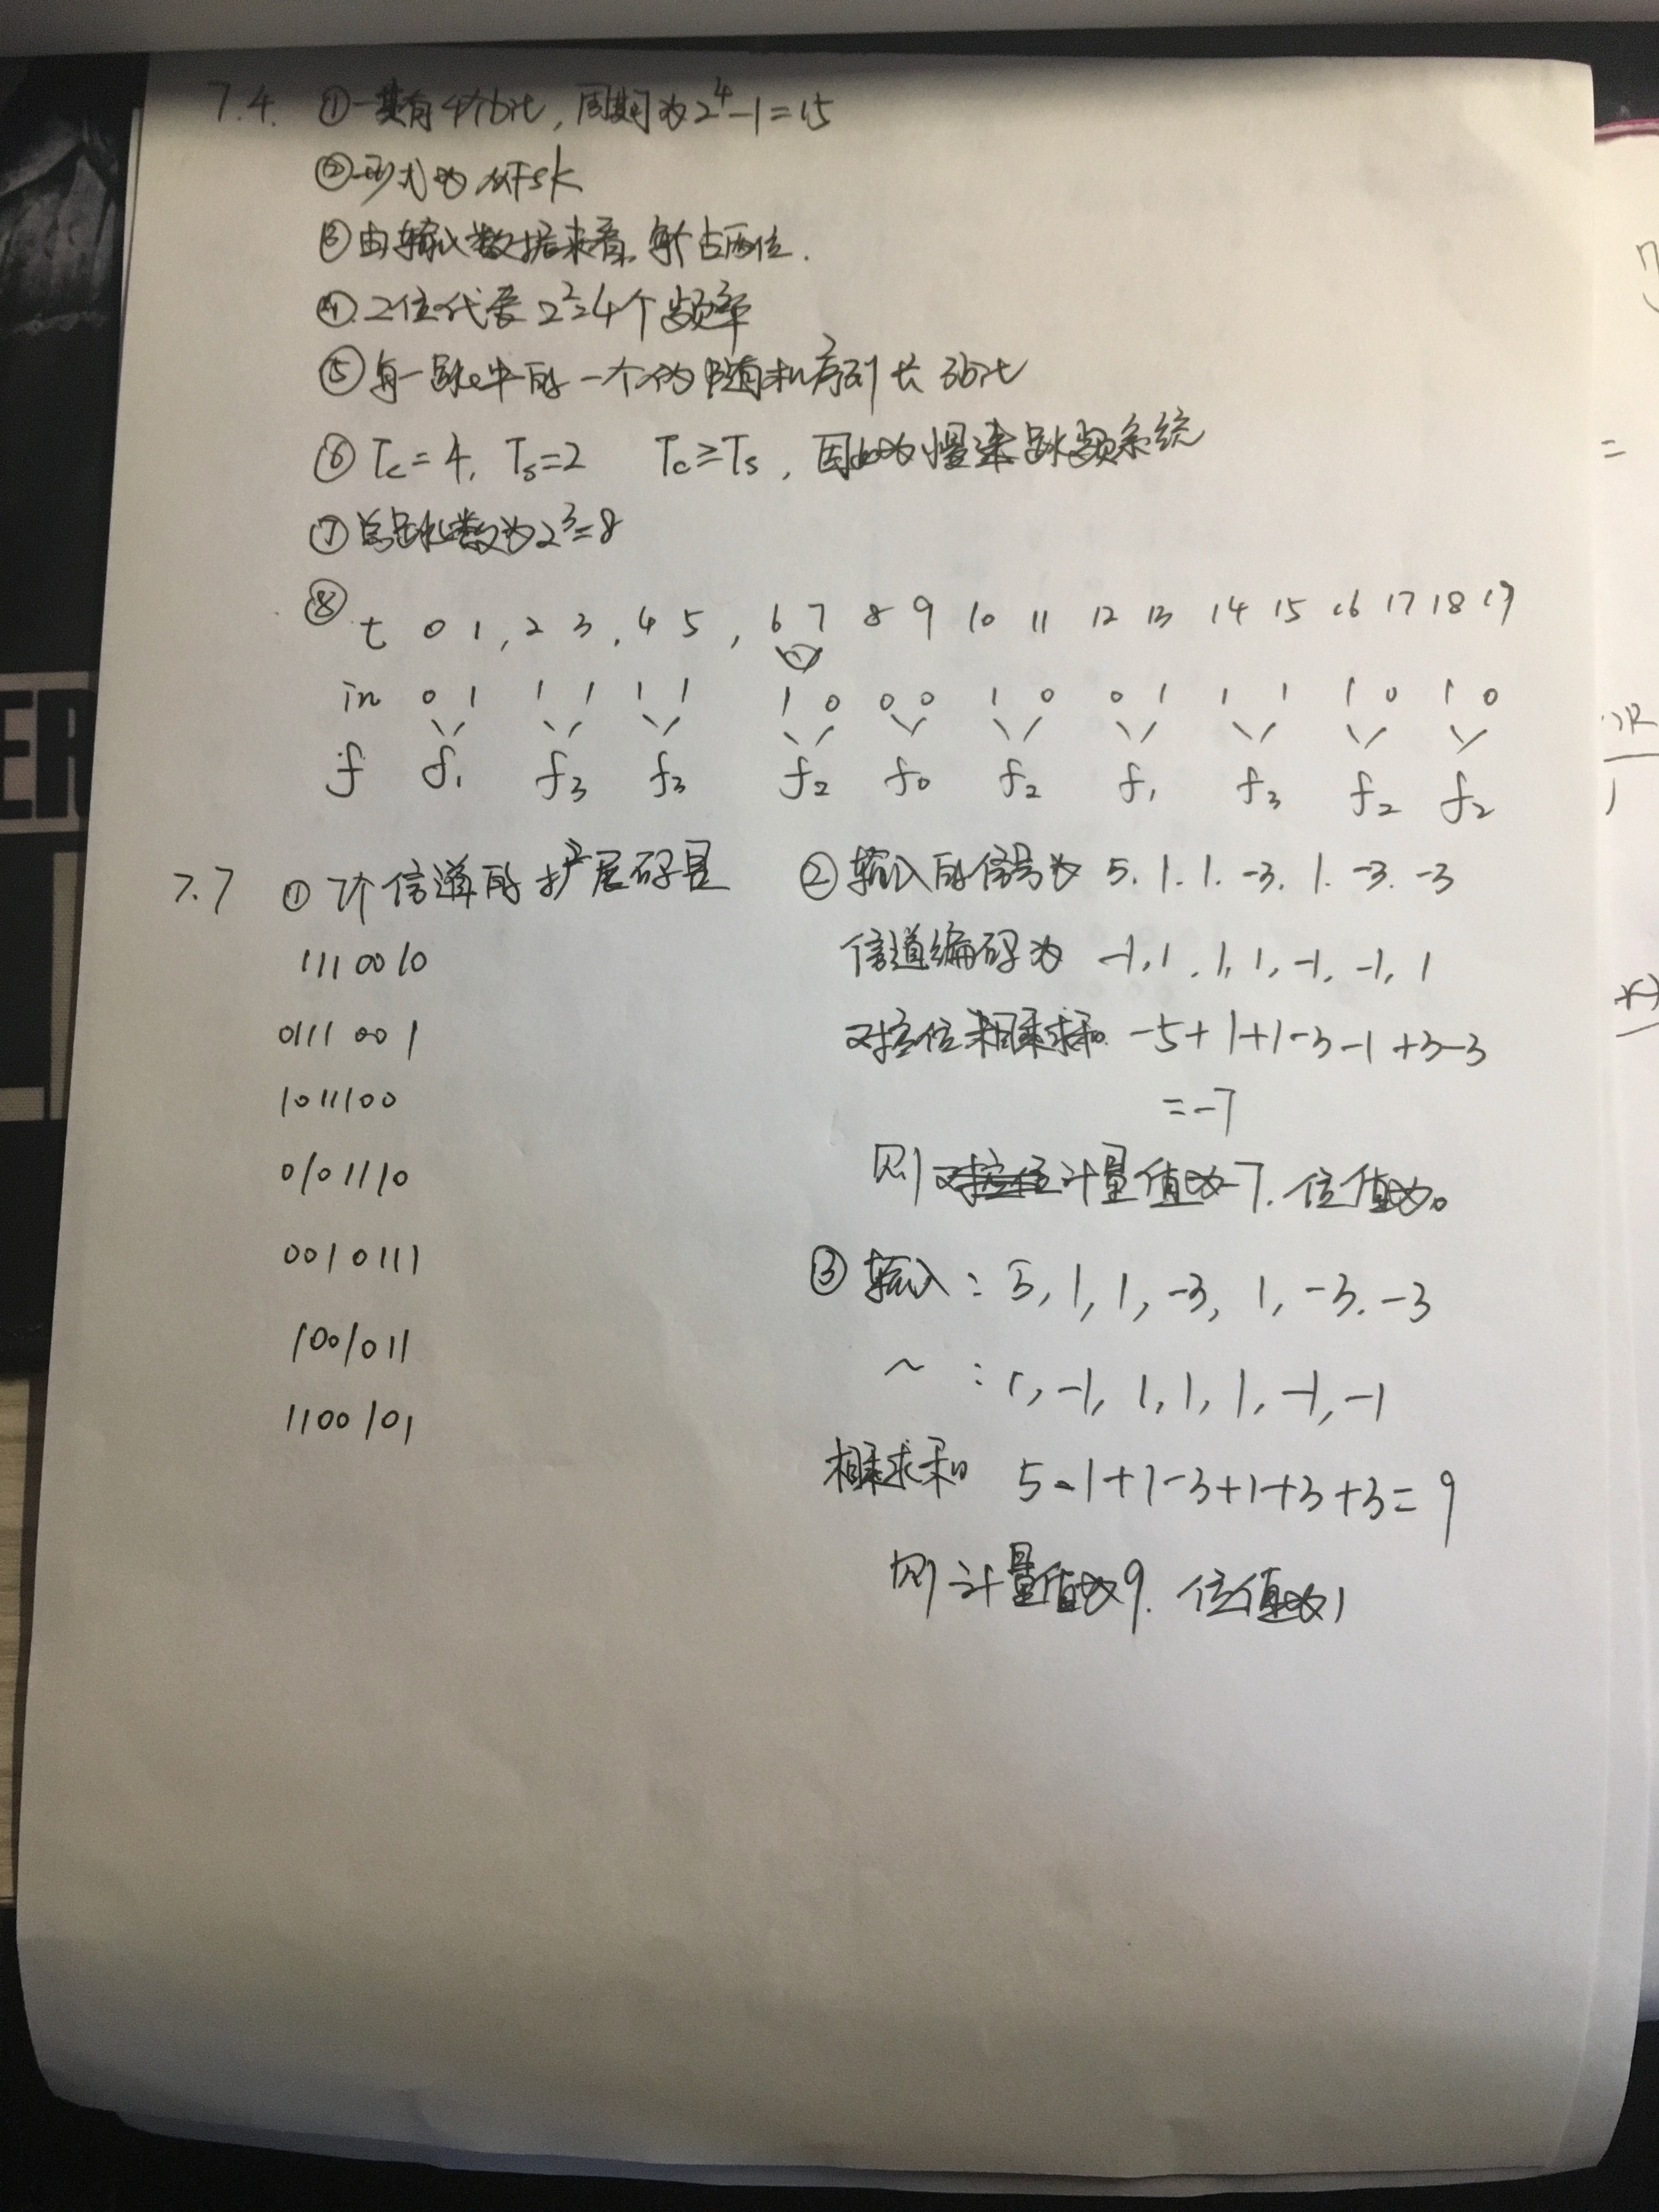 7.4. ①一共有4个bit,周期为2⁴-1=15
②形式为MFSK
③由输入数据来看,每个占两位.
④.2位代表2²=4个频率
⑤每一跳中的一个伪随机序列长3bit
⑥Tc=4, Ts=2 Tc≥Ts,因此为慢速跳频系统
⑦总跳数为2³=8
⑧ t 0 1, 2 3, 4 5, 6 7 8 9 10 11 12 13 14 15 16 17 18 19
in 0 1 1 1 1 1 1 0 0 0 1 0 0 1 1 1 1 0 1 0
f f₁ f₃ f₃ f₂ f₀ f₂ f₁ f₃ f₂ f₂
7.7 ①7个信道的扩展码是
1110010
0111001
1011100
0101110
0010111
1001011
1100101
②输入的信号为 5. 1. 1. -3. 1. -3. -3
信道编码为 -1, 1, 1, 1, -1, -1, 1
对应位相乘求和 -5+1+1-3-1+3-3
=-7
则计量值为-7. 位值为0
③输入: 5, 1, 1, -3, 1, -3. -3
~ : 1, -1, 1, 1, 1, -1, -1
相乘求和 5-1+1-3+1+3+3=9
则计量值为9. 位值为1